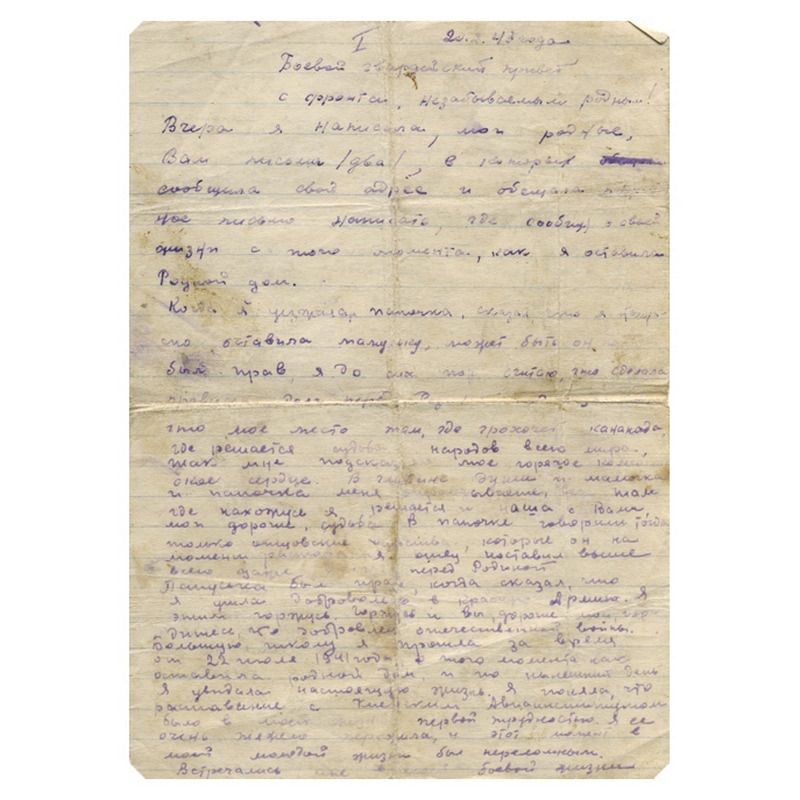 I 20.2.43 года
Боевой гвардейский привет
с фронта, незабываемым родным!
Вчера я написала, мои родные,
Вам письма /два/, в которых
сообщила свой адрес и обещала
ное письмо написать, где сообщу о своей
жизни с того момента, как я оставила
Родной дом.
Когда я уезжала, папочка, сказал что я
оставила мамулку, может быть он
был прав, я до сих пор считаю, что сделала
долг перед
что мое место там, где грохочет канонада,
где решается судьба народов всего мира,
так мне подсказало мое горячее
ское сердце. В глубине души и мамочка
и папочка меня там,
где нахожусь я решается и наша с Вами,
мои дорогие, судьба. В папочке говорили тогда
только отцовские чувства, которые он на
момент поставил выше
всего перед Родиной.
Папуська был прав, когда сказал, что
я ушла добровольно в Красную Армию. Я
этим горжусь. и вы, дорогие мои
отечественной войны.
Большую школу я прошла за время
от 22 июля 1941 года с того момента как
оставила родной дом, и по нынешний день
Я увидала настоящую жизнь. Я поняла, что
расставание с Киевским Авиаинститутом
было в моей жизни первой трудностью. Я ее
очень тяжело пережила, и этот момент в
моей молодой жизни был переломным.
Встречались мне в боевой жизни